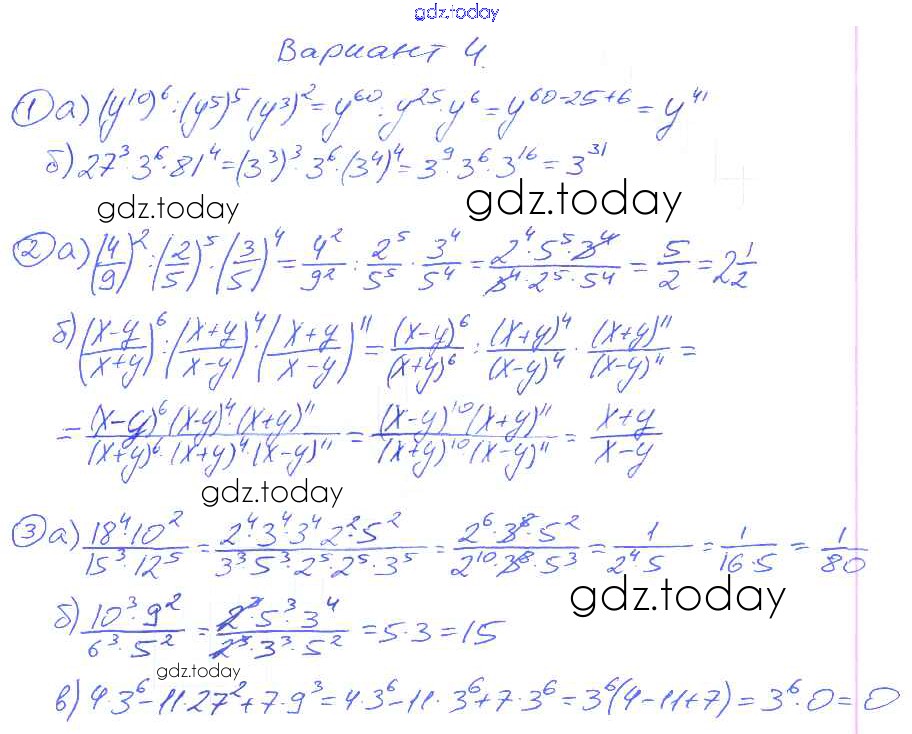 gdz.today
Вариант 4.
① а) (y¹⁰)⁶ : (y⁵)⁵ · (y³)² = y⁶⁰ : y²⁵ · y⁶ = y⁶⁰⁻²⁵⁺⁶ = y⁴¹
б) 27³ · 3⁶ · 81⁴ = (3³)³ · 3⁶ · (3⁴)⁴ = 3⁹ · 3⁶ · 3¹⁶ = 3³¹
gdz.today gdz.today
② а) (4/9)² : (2/5)⁵ · (3/5)⁴ = 4²/9² : 2⁵/5⁵ · 3⁴/5⁴ = (2⁴ · 5⁵ · 3⁴)/(3⁴ · 2⁵ · 5⁴) = 5/2 = 2 1/2
б) ((x-y)/(x+y))⁶ : ((x+y)/(x-y))⁴ · ((x+y)/(x-y))¹¹ = (x-y)⁶/(x+y)⁶ : (x+y)⁴/(x-y)⁴ · (x+y)¹¹/(x-y)¹¹ =
= ((x-y)⁶ · (x-y)⁴ · (x+y)¹¹)/((x+y)⁶ · (x+y)⁴ · (x-y)¹¹) = ((x-y)¹⁰ (x+y)¹¹)/((x+y)¹⁰ (x-y)¹¹) = (x+y)/(x-y)
gdz.today
③ а) (18⁴ · 10²)/(15³ · 12⁵) = (2⁴ · 3⁴ · 3⁴ · 2² · 5²)/(3³ · 5³ · 2⁵ · 2⁵ · 3⁵) = (2⁶ · 3⁸ · 5²)/(2¹⁰ · 3⁸ · 5³) = 1/(2⁴ · 5) = 1/(16 · 5) = 1/80
gdz.today
б) (10³ · 9²)/(6³ · 5²) = (2³ · 5³ · 3⁴)/(2³ · 3³ · 5²) = 5 · 3 = 15
gdz.today
в) 4 · 3⁶ - 11 · 27² + 7 · 9³ = 4 · 3⁶ - 11 · 3⁶ + 7 · 3⁶ = 3⁶(4 - 11 + 7) = 3⁶ · 0 = 0